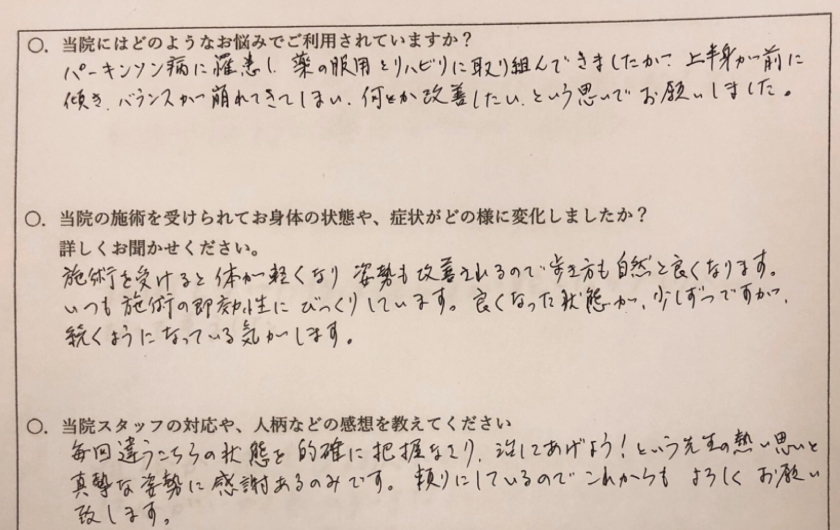 ○. 当院にはどのようなお悩みでご利用されていますか？
パーキンソン病に罹患し、薬の服用とリハビリに取り組んできましたが、上半身が前に
傾き、バランスが崩れてきてしまい、何とか改善したい、という思いでお願いしました。
○. 当院の施術を受けられてお身体の状態や、症状がどの様に変化しましたか？
詳しくお聞かせください。
施術を受けると体が軽くなり 姿勢も改善されるので歩き方も自然と良くなります。
いつも施術の即効性にびっくりしています。良くなった状態が、少しずつですが、
続くようになっている気がします。
○. 当院スタッフの対応や、人柄などの感想を教えてください
毎回違うこちらの状態を的確に把握なさり、治してあげよう！という先生の熱い思いと
真摯な姿勢に感謝あるのみです。頼りにしているのでこれからもよろしくお願い
致します。